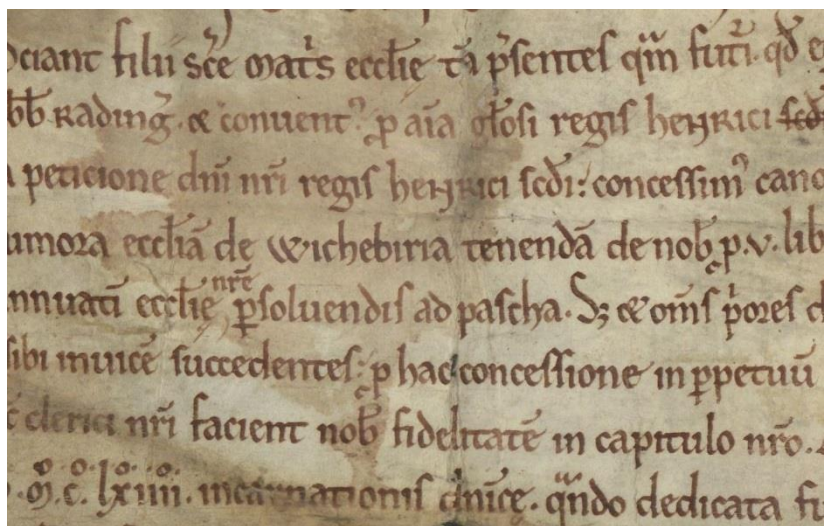 ciant filii sc̄e mat̓s ecclīe tā p̓sentes qͣm fut̓i. qđ
bb̄ Rading̓. & conuent᷒. ꝓ aīa glōsi regis henrici scd̓i
peticione dn̄i nr̄i regis henrici scd̓i: concessim᷒ cano
umora eccl̄iā de Wichebiria tenendā de nob̄ ꝓ.v. lib
nnuati ecclīe nr̄e ꝑsoluendis ad pascha. Sꝫ & om̄s p̓ores
sibi inuicē succedentes: ꝓ hac concessione in ꝑpetuū
clerici nr̄i facient nob̄ fidelitatē in capitulo nr̄o.
.M̊.c̊. lxiiii. incarnationis dn̄ice. qͣndo dedicata